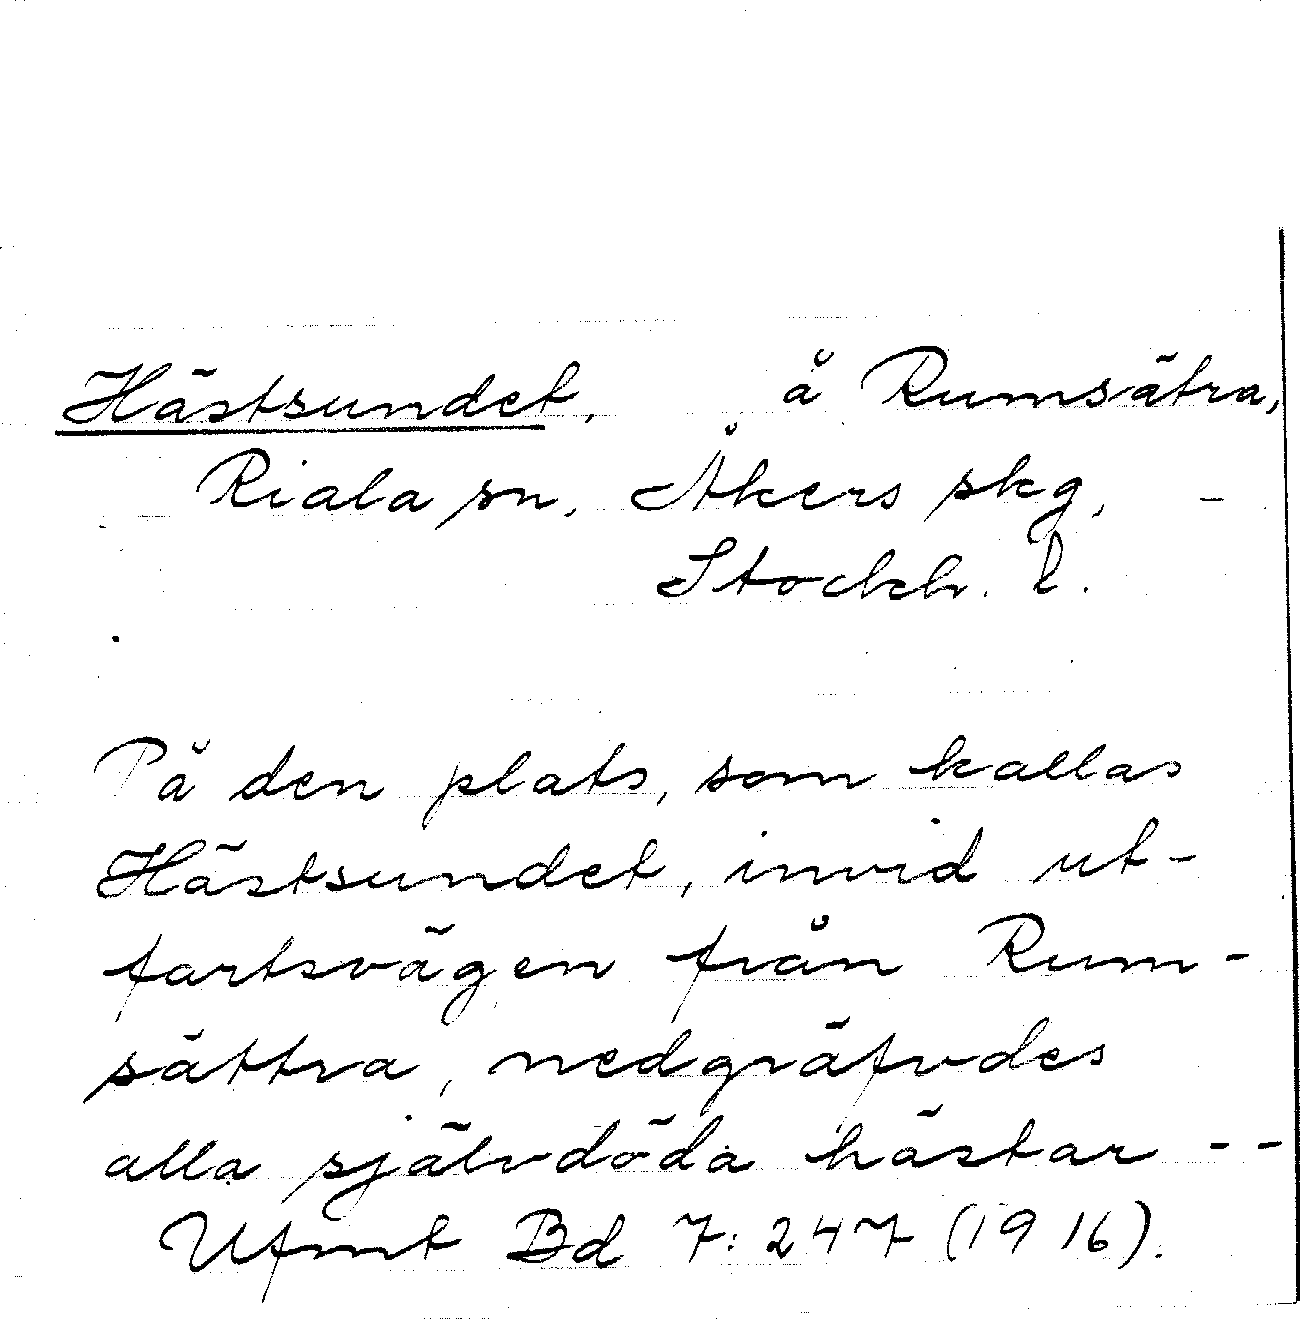 Hästsundet, å Rumsätra,
Riala sn, Åkers skg, -
Stockh. l.
På den plats, som kallas
Hästsundet, invid ut-
fartsvägen från Rum-
sättra, nedgräfvdes
alla självdöda hästar --
Ufmt Bd 7:247 (1916).